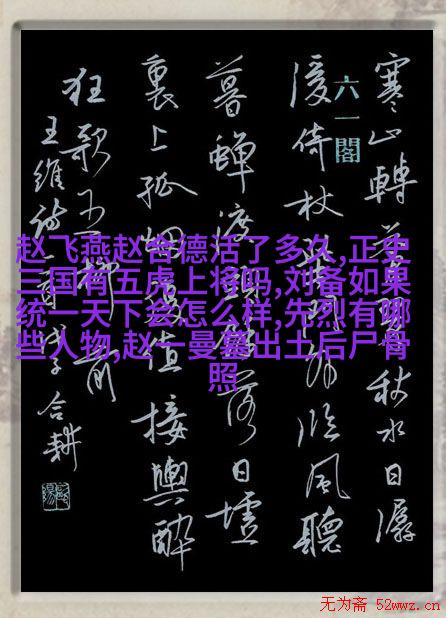 寒山轉蒼翠秋水日潺
湲倚杖柴門外臨風聽
暮蟬渡頭餘落日墟
裏上孤烟復值接輿醉
狂歌五柳前
王維詩一首
合耕
六一閣
赵飞燕赵合德活了多久,正史
三国有五虎上将吗,刘备如果
统一天下会怎么样,先烈有哪
些人物,赵一曼墓出土后尸骨
照
无为斋 52wwz.cn